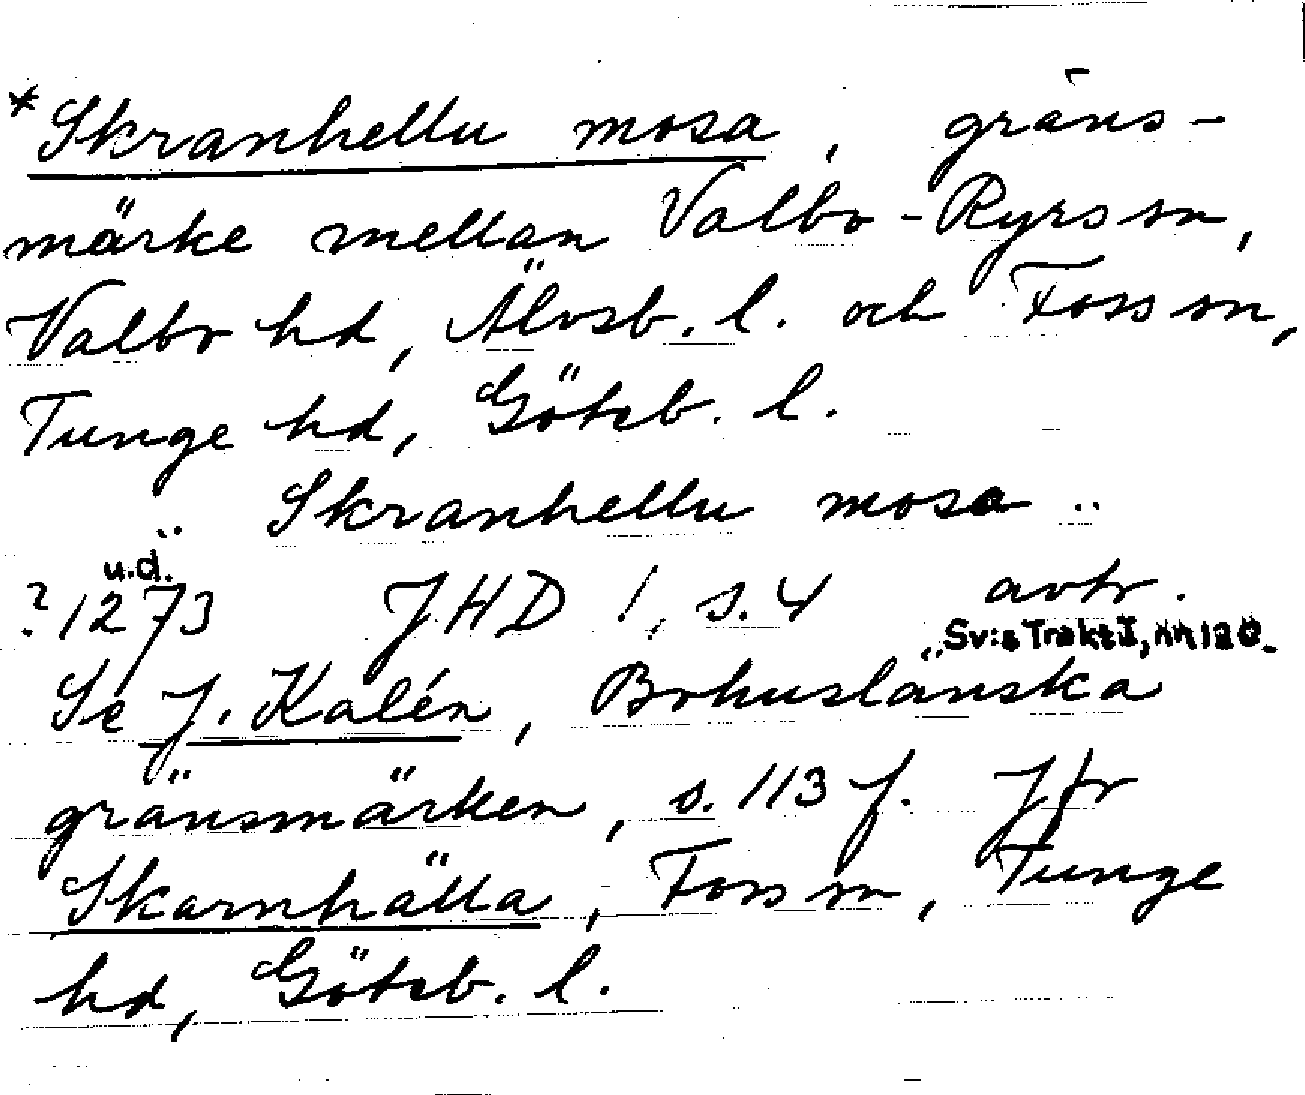 *Skranhellu mosa, gräns-
märke mellan Valbo-Ryrs sn,
Valbo hd, Älvsb. l. och Foss sn,
Tunge hd, Göteb. l.
.. Skranhellu mosa ..
u.d.
? 1273 JHD 1, s. 4 avtr.
Sv:s Trakt I, nr 120.
Se J. Kalén, Bohuslänska
gränsmärken, s. 113 f. Jfr
Skarnhälla, Foss sn, Tunge
hd, Göteb. l.